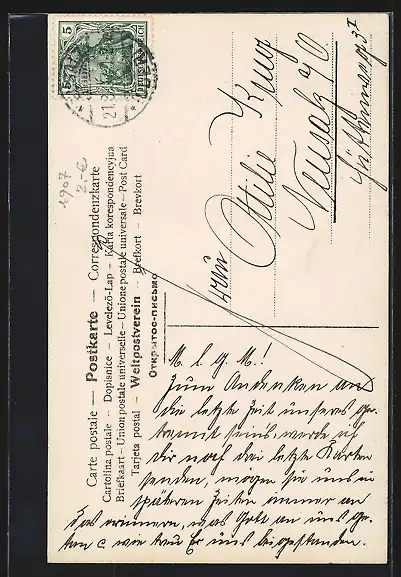 Carte postale — Postkarte — Correspondenzkarte
Cartolina postale — Dopisnice — Levelező-Lap — Karta korespondencyjna
Briefkaart — Union postale universelle — Unione postale universale — Post Card
Tarjeta postal — Weltpostverein — Brefkort — Brevkort
Открытое письмо
1907
2.-€
5
Frau
Ottilie Krug
M. l. g. M.!
Zum Andenken an
die letzte Zeit unseres ge-
trennt seins, werde ich
Dir noch drei letzte Karten
senden, mögen sie uns in
späteren Zeiten immer an
das erinnern, was Gott an uns ge-
tan u. wie treu Er uns beigestanden.